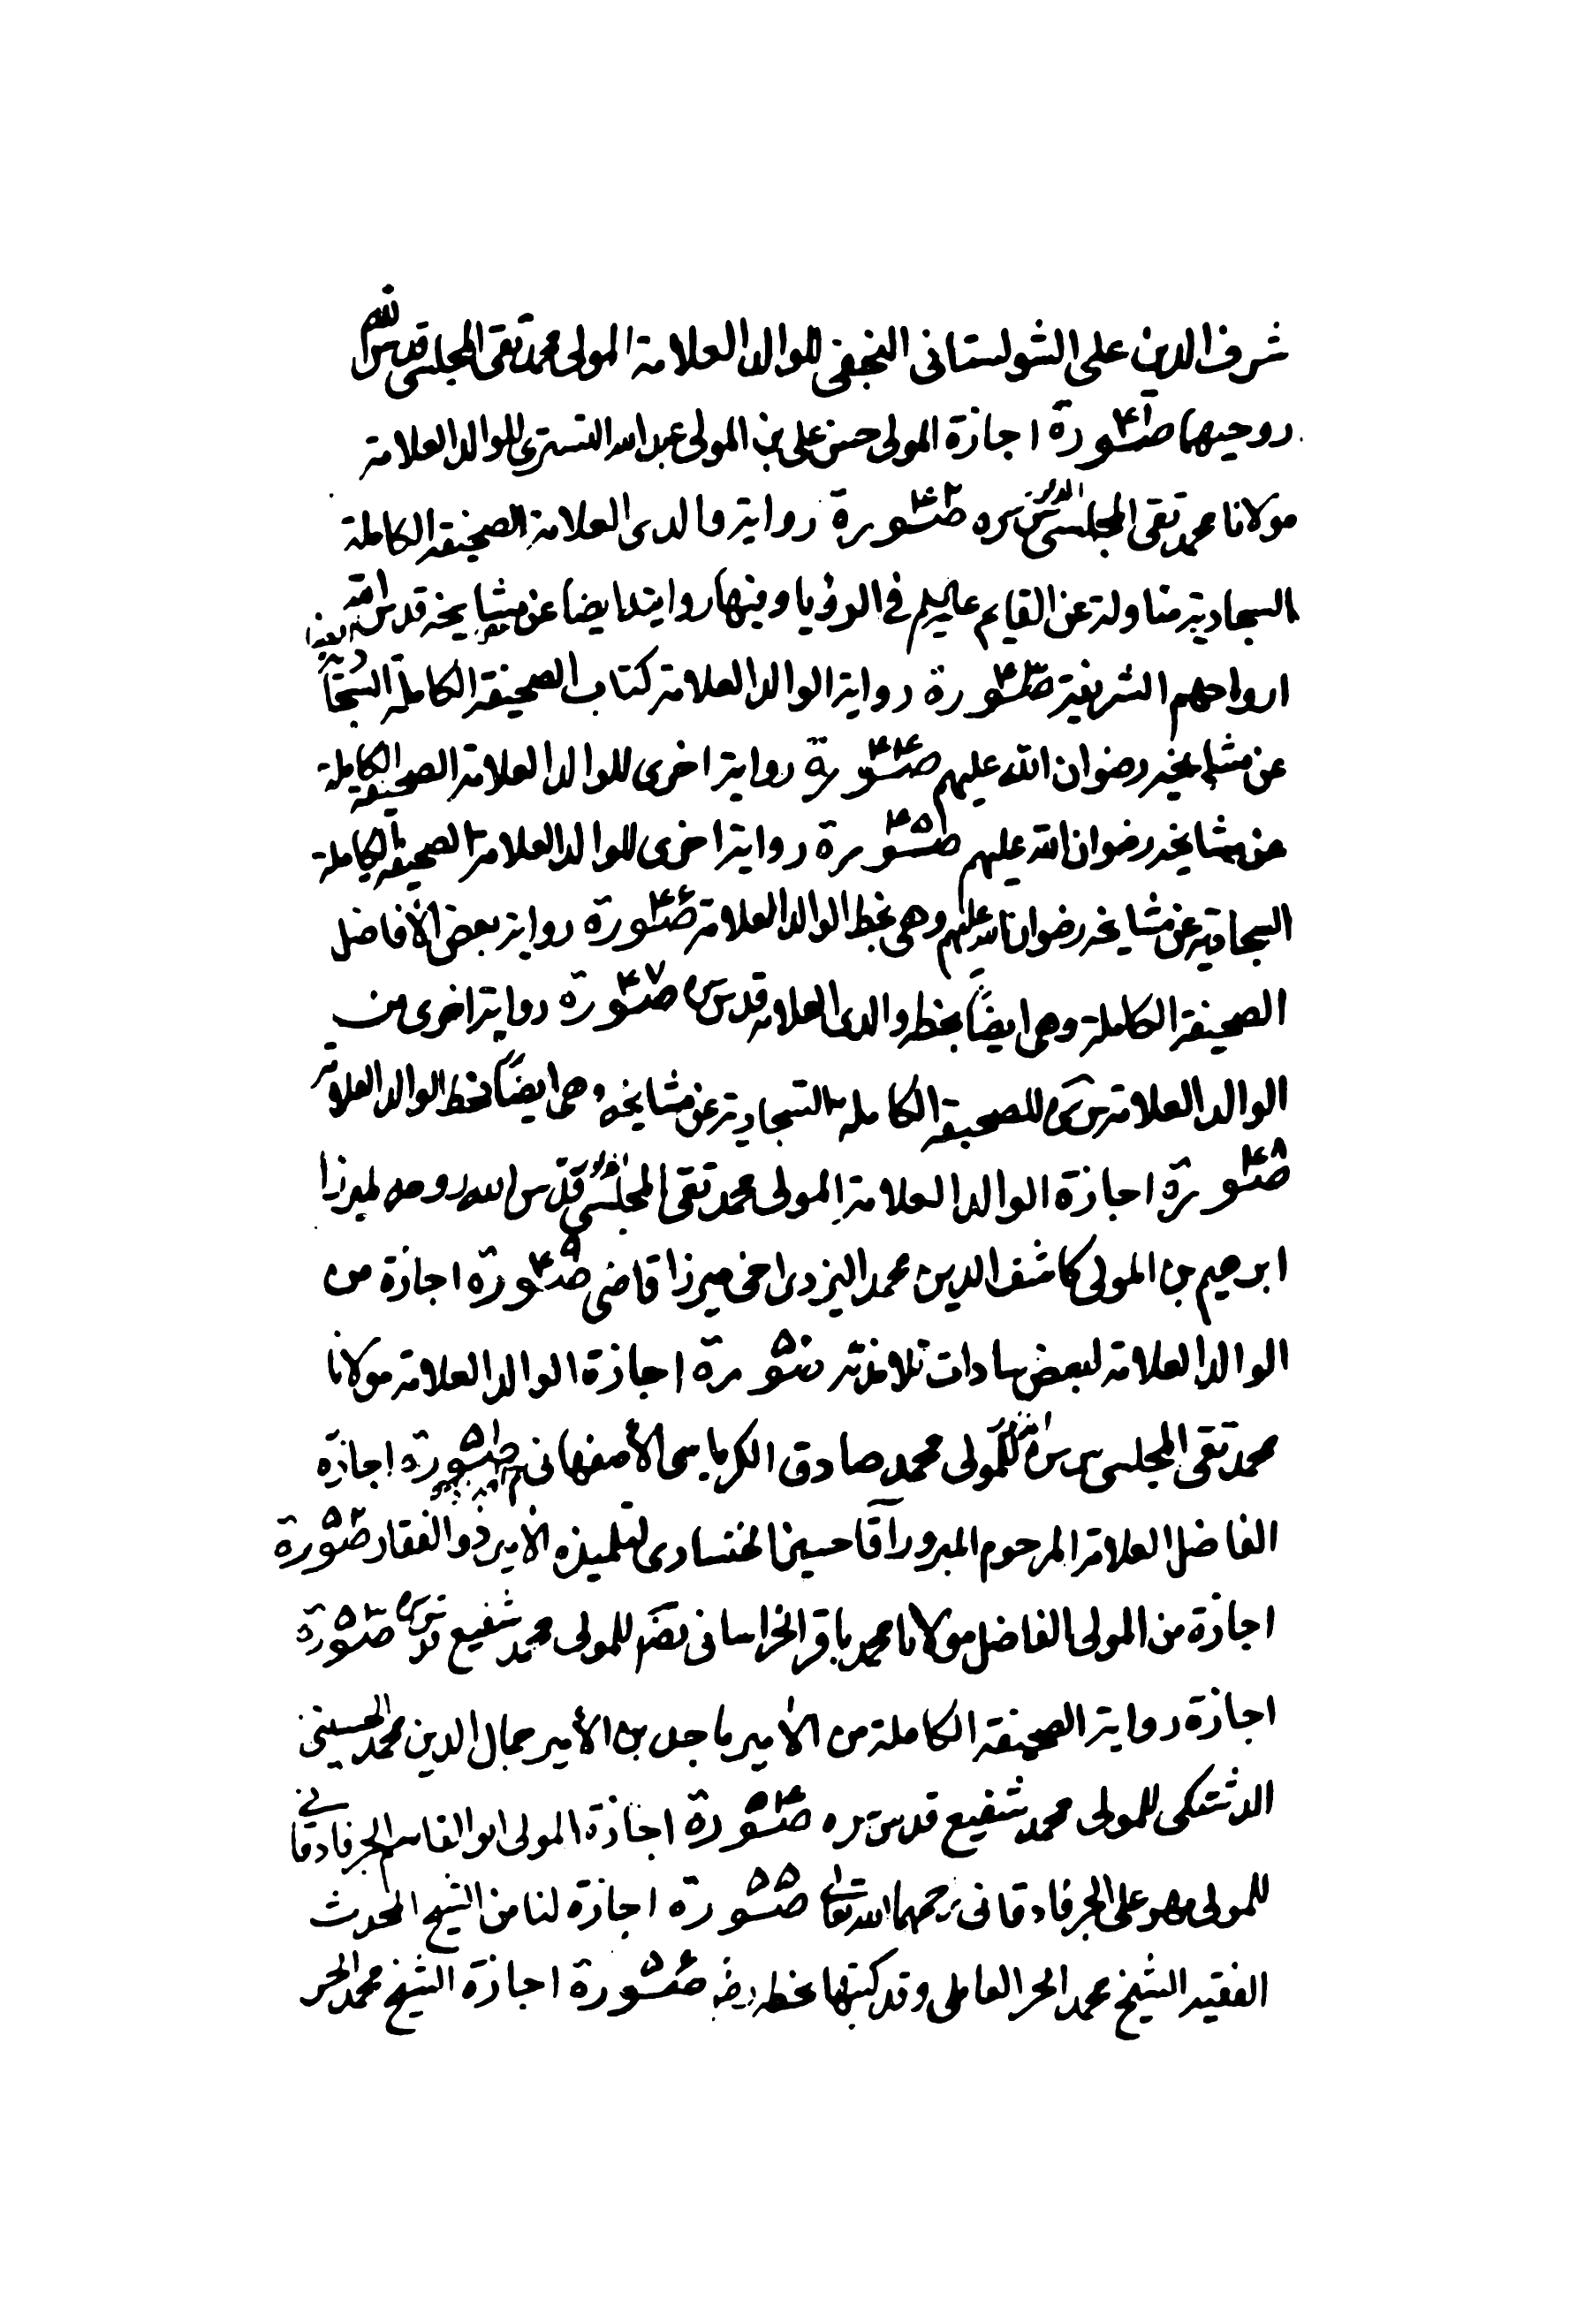 شرف الدين على الشولستانى النجفى للوالد العلامة المولى محمد تقى المجلسى قدس الله
روحيهما صورة ۴۱ اجازة المولى حسن على بن المولى عبد الله التسترى للوالد العلامة
مولانا محمد تقى المجلسى قدس سره صورة ۴۲ رواية والدى العلامة الصحيفة الكاملة
السجادية مناولة عن القايم عليه السلم فى الرؤيا وفيها روايته ايضا عن مشايخه قدس الله
ارواحهم الشريفة صورة ۴۳ رواية الوالد العلامة كتاب الصحيفة الكاملة السجادية
عن مشايخه رضوان الله عليهم صورة ۴۴ رواية اخرى للوالد العلامة الصحيفة الكاملة
عن مشايخه رضوان الله عليهم صورة ۴۵ رواية اخرى للوالد العلامة الصحيفة الكاملة
السجادية عن مشايخه رضوان الله عليهم وهى بخط الوالد العلامة صورة ۴۶ رواية بعض الأفاضل
الصحيفة الكاملة وهى ايضاً بخط والدى العلامة قدس سره صورة ۴۷ رواية اخرى من
الوالد العلامة قدس سره للصحيفة الكاملة السجادية عن مشايخه وهى ايضاً بخط الوالد العلامة
صورة ۴۸ اجازة الوالد العلامة المولى محمد تقى المجلسى قدس الله روحه لميرزا
ابرهيم بن المولى كاشف الدين محمد اليزدى اخى ميرزا قاضى صورة ۴۹ اجازة من
الوالد العلامة لبعض سادات تلامذته صورة ۵۰ اجازة الوالد العلامة مولانا
محمد تقى المجلسى قدس سره للمولى محمد صادق الكرباسى الأصفهانى صورة ۵۱ اجازة
الفاضل العلامة المرحوم المبرور آقا حسين الخنسارى لتلميذه الأمير ذو الفقار صورة ۵۲
اجازة من المولى الفاضل مولانا محمد باقر الخراسانى للمولى محمد شفيع قدس سره صورة ۵۳
اجازة رواية الصحيفة الكاملة من الأمير ماجد بن الأمير جمال الدين محمد الحسينى
الدشتكى للمولى محمد شفيع قدس سره صورة ۵۴ اجازة المولى ابو القاسم الجرفادقانى
للمولى على الجرفادقانى رحمهما الله تعالى صورة ۵۵ اجازة لنا من الشيخ المحدث
الفقيه الشيخ محمد الحر العاملى وقد كتبتها بخطه رضه صورة ۵۶ اجازة الشيخ محمد الحر